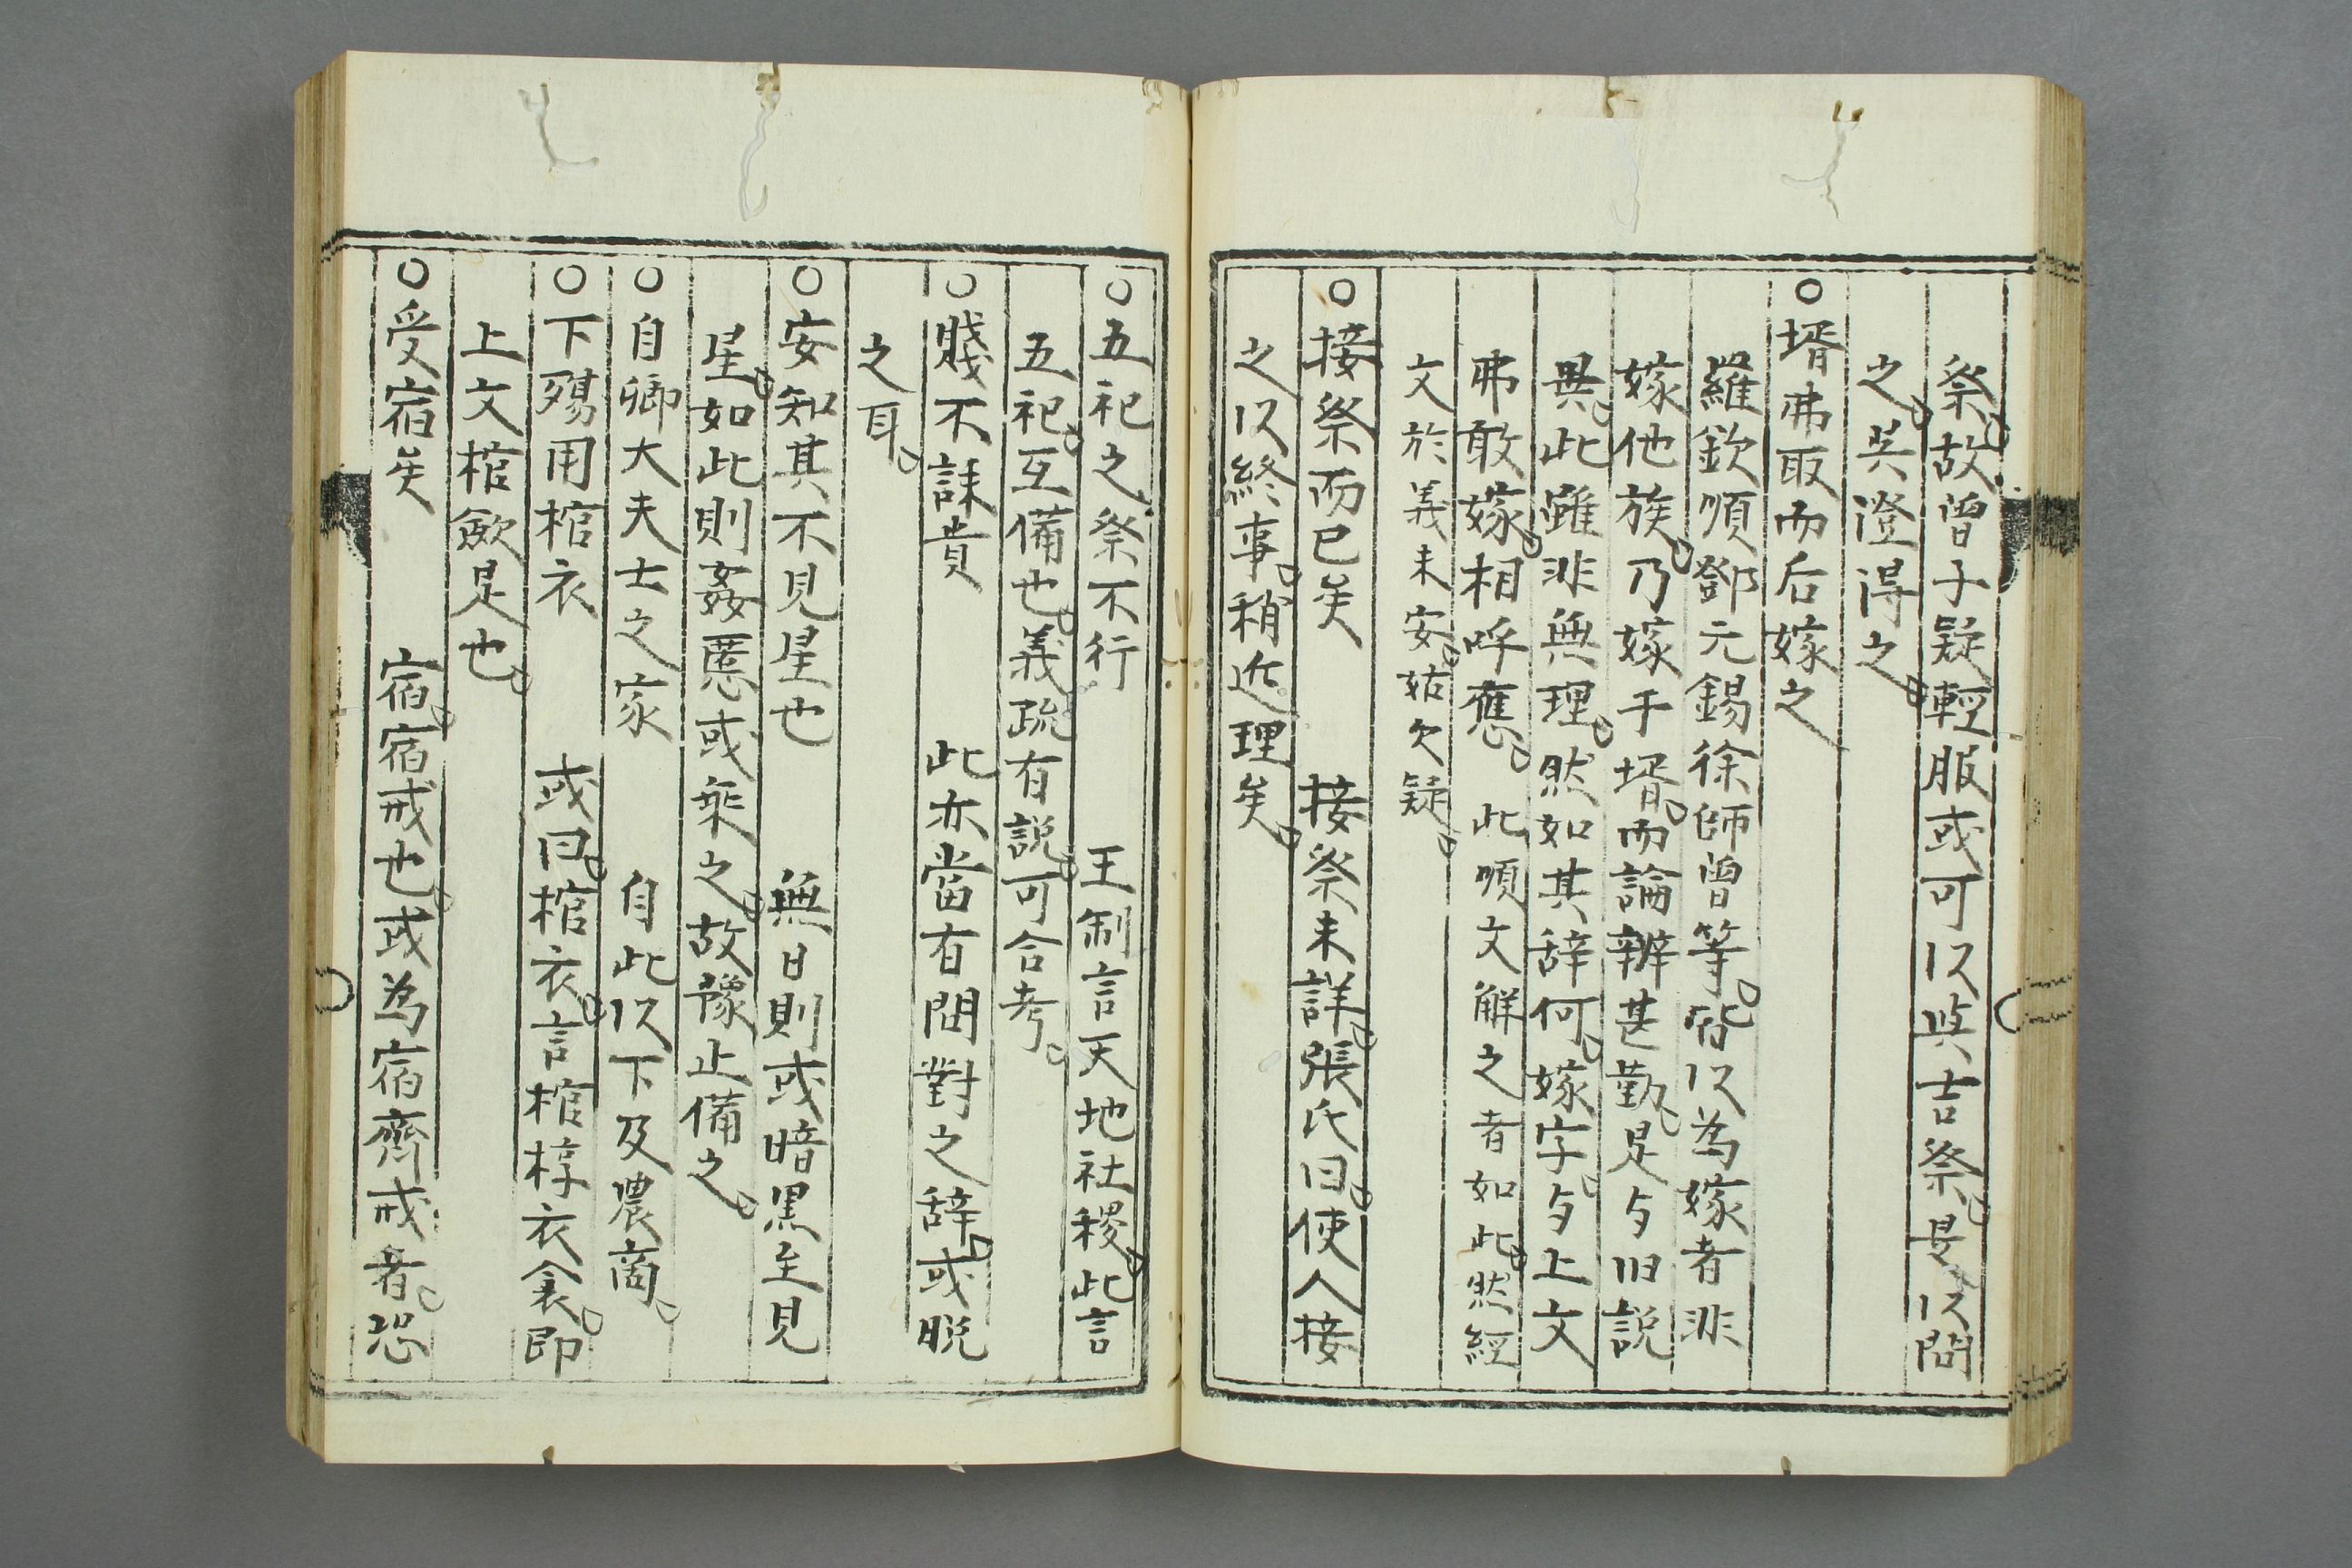 祭。故曾子疑輕服或可以與吉祭。是以問
之。吳澄得之。
○壻弗取而后嫁之
羅欽順鄧元錫徐師曾等。皆以為嫁者非
嫁他族。乃嫁于壻。而論辨甚勤。是与旧説
異。此雖非無理。然如其辞何。嫁字与上文
弗敢嫁。相呼應。此順文解之者如此。然經
文於義未安。姑欠疑。
○接祭而已矣　接祭未詳。張氏曰。使人接
之以終事。稍近理矣。
○五祀之祭不行　王制言天地社稷。此言
五祀。互備也。義疏有説。可合考。
○賤不誄貴　此亦當有問對之辞。或脱
之耳。
○安知其不見星也　無日則或暗黒至見
星。如此則姦慝或乗之。故豫止備之。
○自卿大夫士之家　自此以下及農商。
○下殤用棺衣　或曰。棺衣。言棺椁衣衾。即
上文棺歛是也。
○受宿矣　宿。宿戒也。或為宿齊戒者。恐